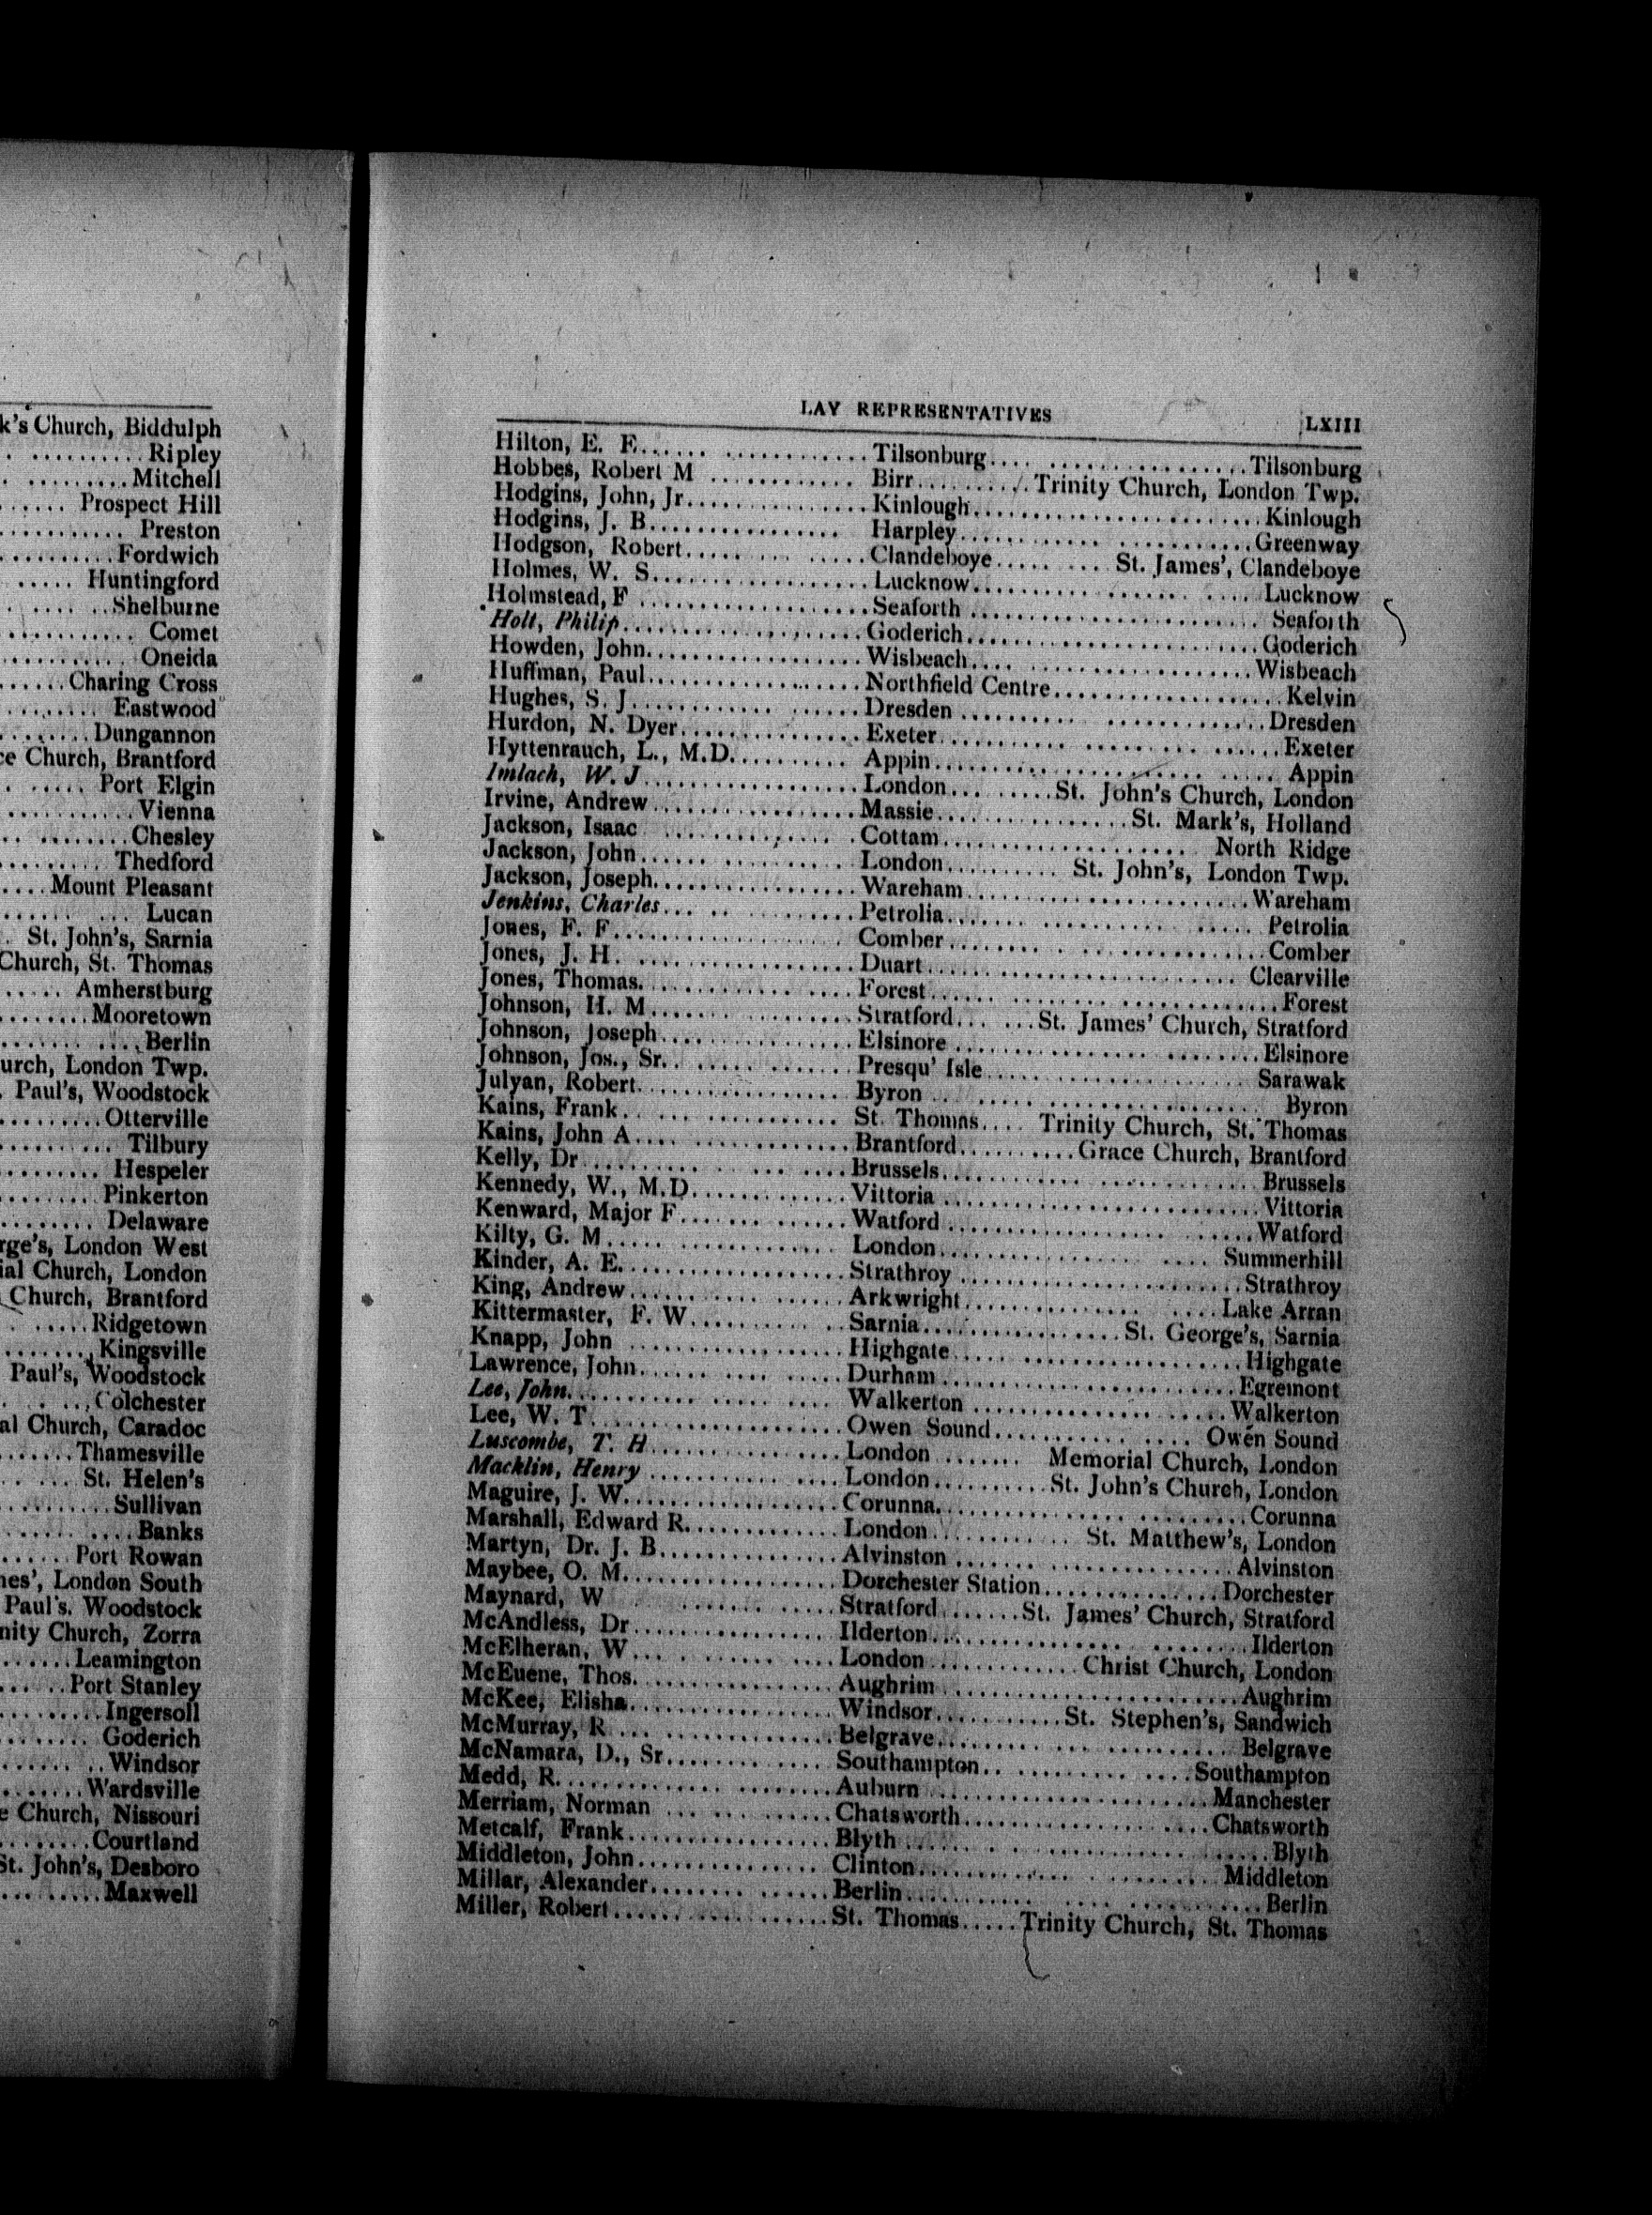 k's Church, Biddulph
Ripley
Mitchell
Prospect Hill
Preston
Fordwich
Huntingford
Shelburne
Comet
Oneida
Charing Cross
Eastwood
Dungannon
ce Church, Brantford
Port Elgin
Vienna
Chesley
Thedford
Mount Pleasant
Lucan
St. John's, Sarnia
Church, St. Thomas
Amherstburg
Mooretown
Berlin
urch, London Twp.
Paul's, Woodstock
Otterville
Tilbury
Hespeler
Pinkerton
Delaware
rge's, London West
ial Church, London
Church, Brantford
Ridgetown
Kingsville
Paul's, Woodstock
Colchester
al Church, Caradoc
Thamesville
St. Helen's
Sullivan
Banks
Port Rowan
nes', London South
Paul's. Woodstock
nity Church, Zorra
Leamington
Port Stanley
Ingersoll
Goderich
Windsor
Wardsville
e Church, Nissouri
Courtland
St. John's, Desboro
Maxwell
LAY REPRESENTATIVES LXIII
Hilton, E. E. Tilsonburg Tilsonburg
Hobbes, Robert M Birr Trinity Church, London Twp.
Hodgins, John, Jr. Kinlough Kinlough
Hodgins, J. B. Harpley Greenway
Hodgson, Robert Clandeboye St. James', Clandeboye
Holmes, W. S. Lucknow Lucknow
Holmstead, F Seaforth Seaforth
Holt, Philip Goderich Goderich
Howden, John Wisbeach Wisbeach
Huffman, Paul Northfield Centre Kelvin
Hughes, S. J. Dresden Dresden
Hurdon, N. Dyer Exeter Exeter
Hyttenrauch, L., M.D. Appin Appin
Imlach, W. J. London St. John's Church, London
Irvine, Andrew Massie St. Mark's, Holland
Jackson, Isaac Cottam North Ridge
Jackson, John London St. John's, London Twp.
Jackson, Joseph Wareham Wareham
Jenkins, Charles Petrolia Petrolia
Jones, F. F. Comber Comber
Jones, J. H. Duart Clearville
Jones, Thomas Forest Forest
Johnson, H. M. Stratford St. James' Church, Stratford
Johnson, Joseph Elsinore Elsinore
Johnson, Jos., Sr. Presqu' Isle Sarawak
Julyan, Robert Byron Byron
Kains, Frank St. Thomas Trinity Church, St. Thomas
Kains, John A. Brantford Grace Church, Brantford
Kelly, Dr Brussels Brussels
Kennedy, W., M.D. Vittoria Vittoria
Kenward, Major F. Watford Watford
Kilty, G. M. London Summerhill
Kinder, A. E. Strathroy Strathroy
King, Andrew Arkwright Lake Arran
Kittermaster, F. W. Sarnia St. George's, Sarnia
Knapp, John Highgate Highgate
Lawrence, John Durham Egremont
Lee, John Walkerton Walkerton
Lee, W. T. Owen Sound Owen Sound
Luscombe, T. H. London Memorial Church, London
Macklin, Henry London St. John's Church, London
Maguire, J. W. Corunna Corunna
Marshall, Edward R. London St. Matthew's, London
Martyn, Dr. J. B. Alvinston Alvinston
Maybee, O. M. Dorchester Station Dorchester
Maynard, W Stratford St. James' Church, Stratford
McAndless, Dr Ilderton Ilderton
McElheran, W. London Christ Church, London
McEuene, Thos. Aughrim Aughrim
McKee, Elisha Windsor St. Stephen's, Sandwich
McMurray, R Belgrave Belgrave
McNamara, D., Sr. Southampton Southampton
Medd, R. Auburn Manchester
Merriam, Norman Chatsworth Chatsworth
Metcalf, Frank Blyth Blyth
Middleton, John Clinton Middleton
Millar, Alexander Berlin Berlin
Miller, Robert St. Thomas Trinity Church, St. Thomas